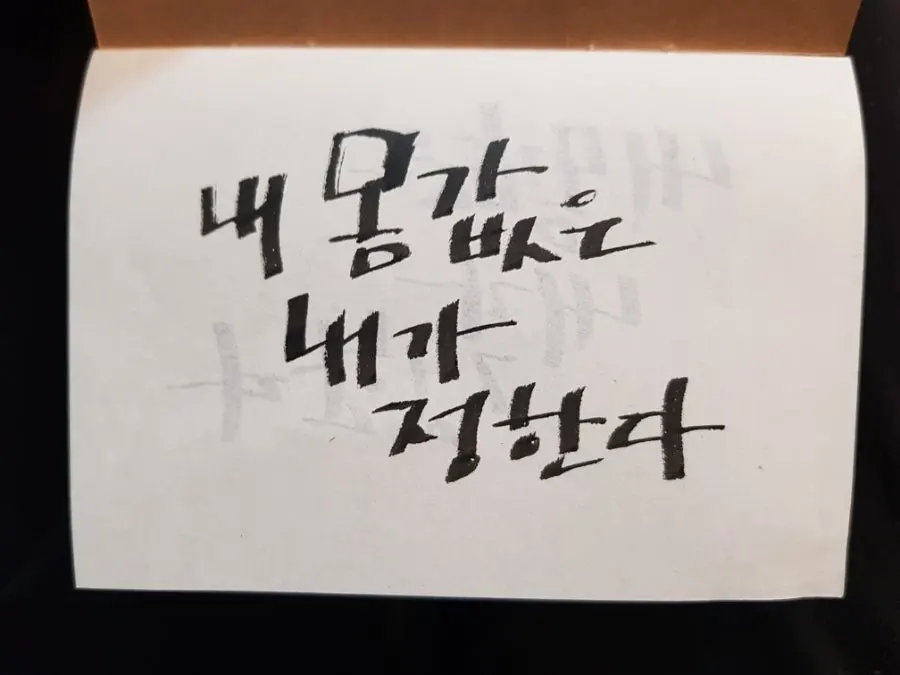 내 몸값은
내가
정한다